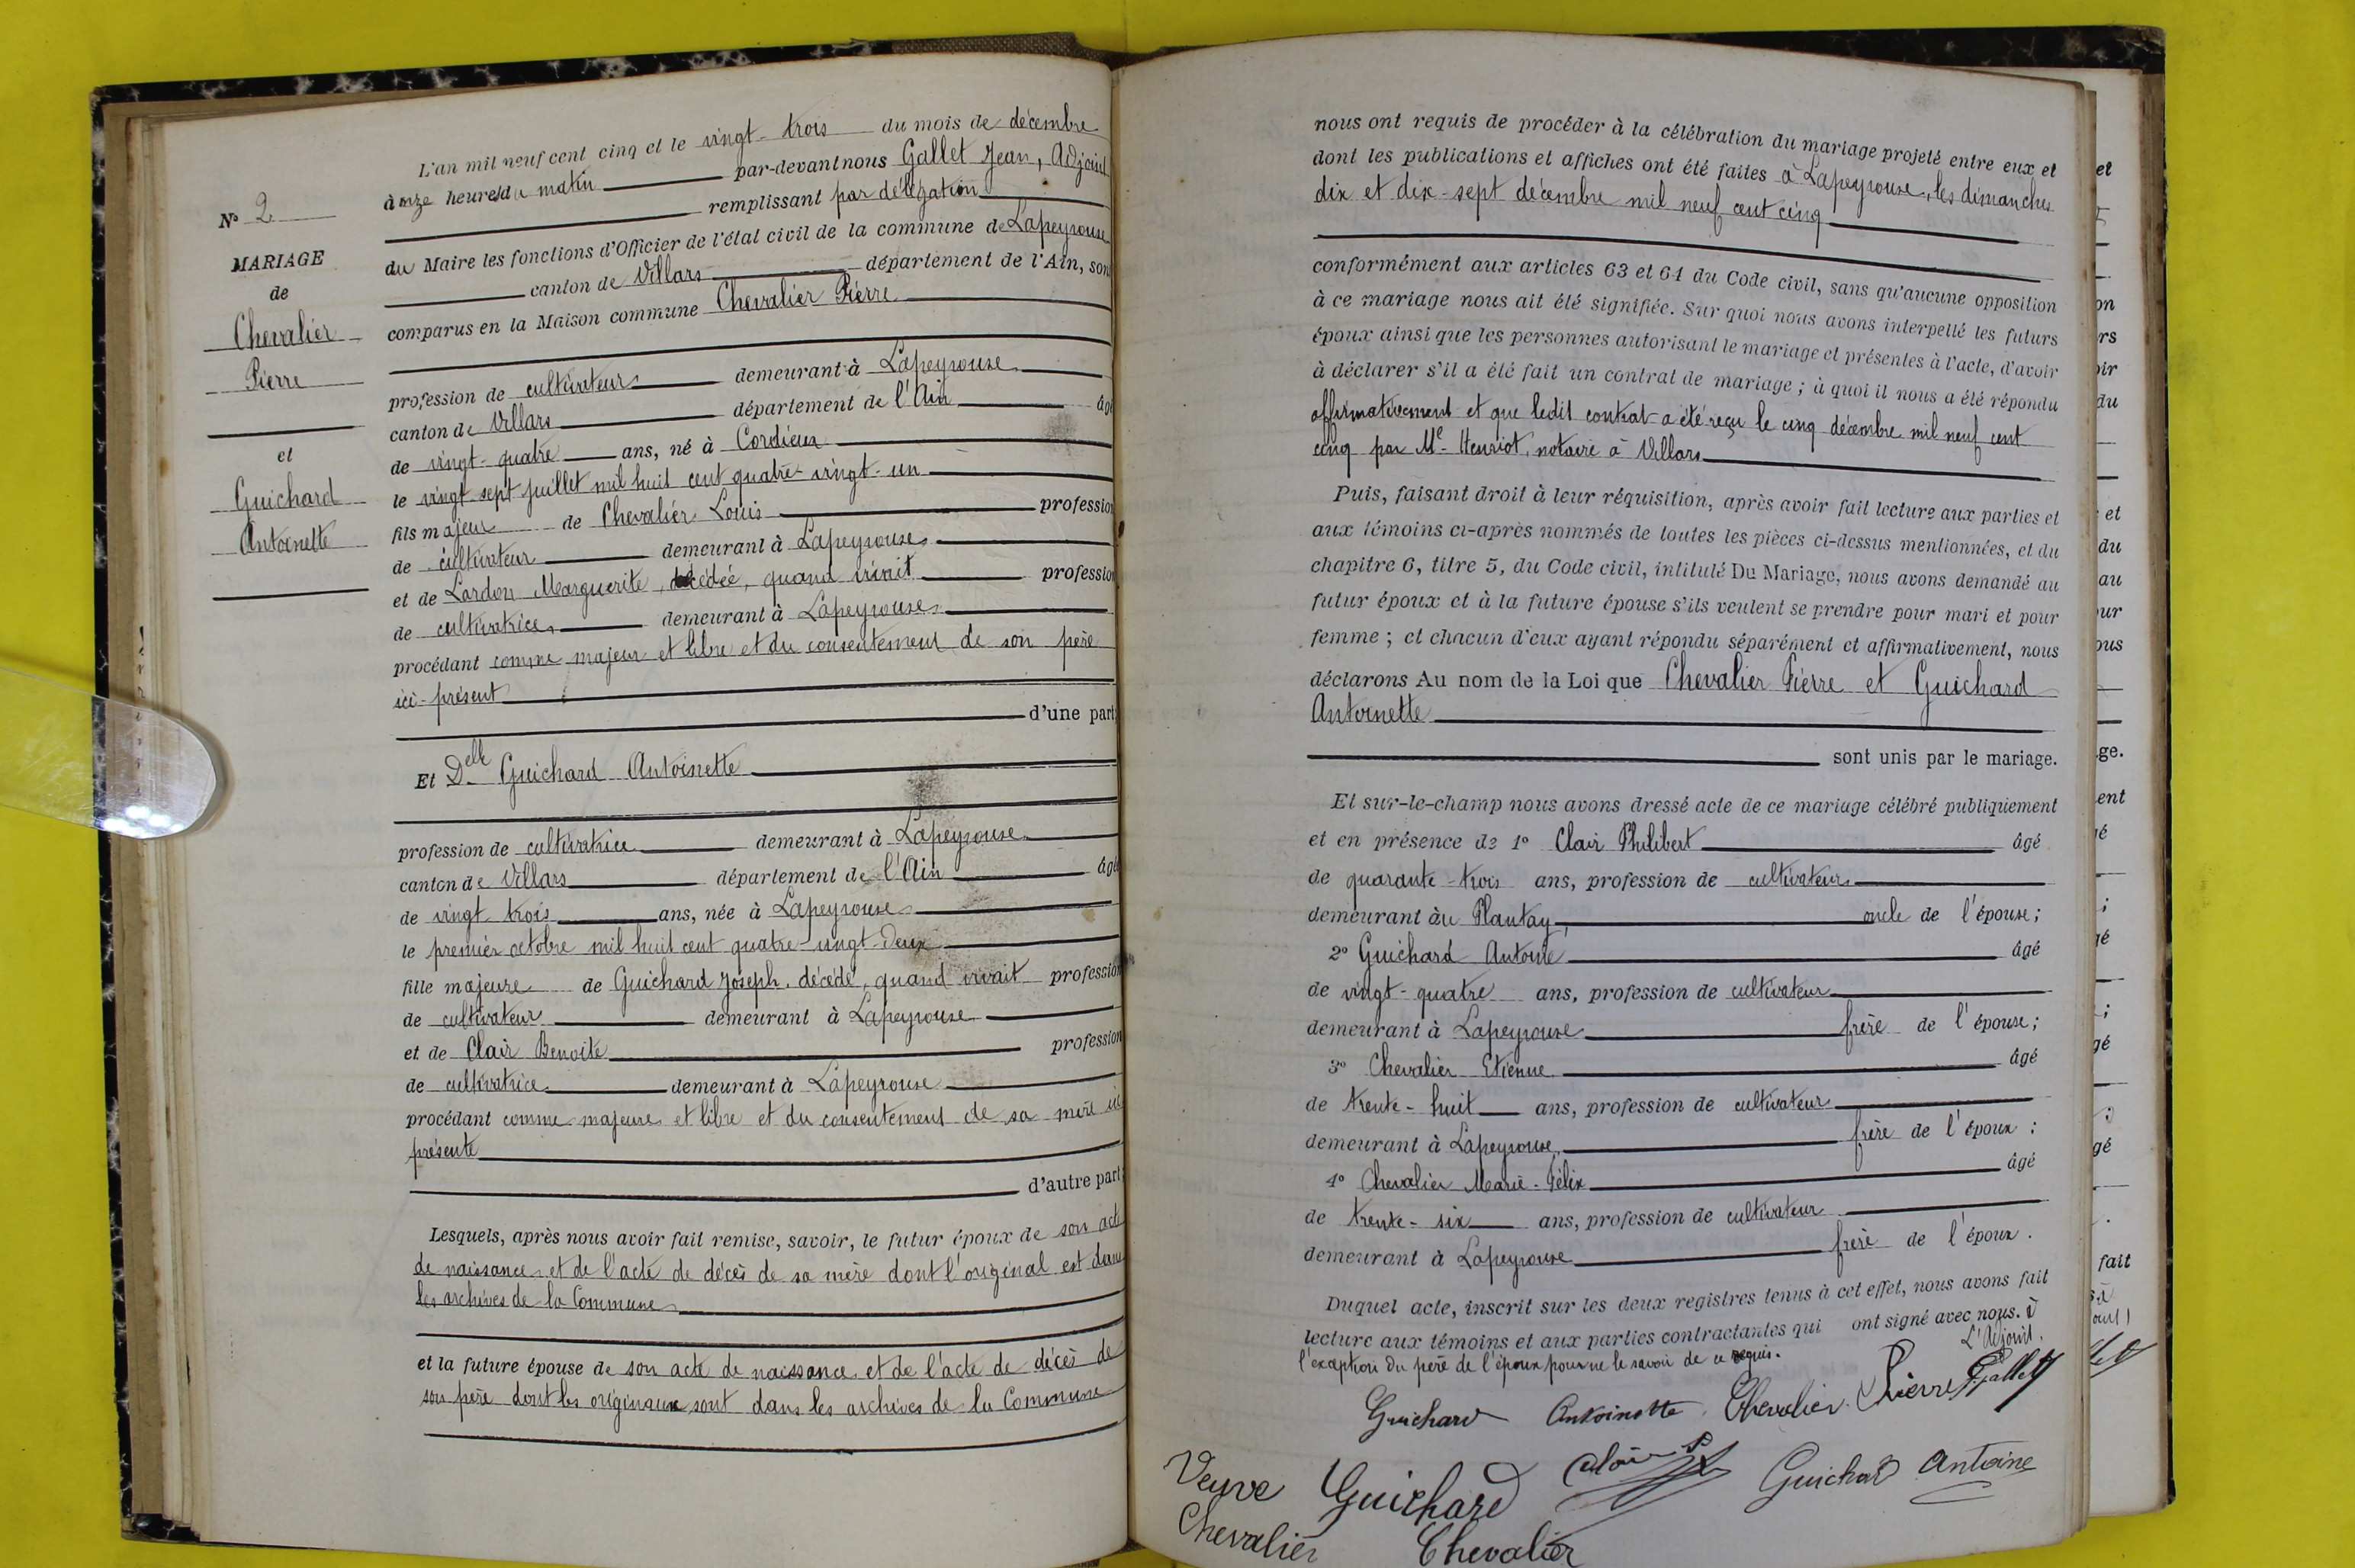 L'an mil neuf cent cinq et le vingt-trois du mois de décembre
à onze heures du matin par-devant nous Gallet Jean, Adjoint
remplissant par délégation
du Maire les fonctions d'Officier de l'état civil de la commune de Lapeyrouse
canton de Villars département de l'Ain, son
comparus en la Maison commune Chevalier Pierre
profession de cultivateur demeurant à Lapeyrouse
canton de Villars département de l'Ain âgé
de vingt-quatre ans, né à Cordieux
le vingt-sept juillet mil huit cent quatre-vingt-un
fils majeur de Chevalier Louis profession
de cultivateur demeurant à Lapeyrouse
et de Lardon Marguerite, décédée, quand vivait profession
de cultivatrice, demeurant à Lapeyrouse
procédant comme majeur et libre et du consentement de son père
ici-présent
d'une part
Et Delle Guichard Antoinette
profession de cultivatrice demeurant à Lapeyrouse
canton de Villars département de l'Ain âgé
de vingt trois ans, née à Lapeyrouse
le premier octobre mil huit cent quatre-vingt-deux
fille majeure de Guichard Joseph, décédé, quand vivait profession
de cultivateur demeurant à Lapeyrouse
et de Clair Benoite profession
de cultivatrice demeurant à Lapeyrouse
procédant comme majeure et libre et du consentement de sa mère ici
présente
d'autre part
Lesquels, après nous avoir fait remise, savoir, le futur époux de son acte
de naissance et de l'acte de décès de sa mère dont l'original est dans
les archives de la Commune
et la future épouse de son acte de naissance et de l'acte de décès de
son père dont les originaux sont dans les archives de la Commune
No 2
MARIAGE
de
Chevalier
Pierre
et
Guichard
Antoinette
nous ont requis de procéder à la célébration du mariage projeté entre eux et
dont les publications et affiches ont été faites à Lapeyrouse, les dimanches
dix et dix-sept décembre mil neuf cent cinq
conformément aux articles 63 et 64 du Code civil, sans qu'aucune opposition
à ce mariage nous ait été signifiée. Sur quoi nous avons interpellé les futurs
époux ainsi que les personnes autorisant le mariage et présentes à l'acte, d'avoir
à déclarer s'il a été fait un contrat de mariage ; à quoi il nous a été répondu
affirmativement et que ledit contrat a été reçu le cinq décembre mil neuf cent
cinq par Me Henriot, notaire à Villars
Puis, faisant droit à leur réquisition, après avoir fait lecture aux parties et
aux témoins ci-après nommés de toutes les pièces ci-dessus mentionnées, et du
chapitre 6, titre 5, du Code civil, intitulé Du Mariage, nous avons demandé au
futur époux et à la future épouse s'ils veulent se prendre pour mari et pour
femme ; et chacun d'eux ayant répondu séparément et affirmativement, nous
déclarons Au nom de la Loi que Chevalier Pierre et Guichard
Antoinette
sont unis par le mariage.
Et sur-le-champ nous avons dressé acte de ce mariage célébré publiquement
et en présence de 1° Clair Philibert âgé
de quarante-trois ans, profession de cultivateur
demeurant àu Plantay, oncle de l'épouse ;
2° Guichard Antoine âgé
de vingt-quatre ans, profession de cultivateur
demeurant à Lapeyrouse frère de l'épouse ;
3° Chevalier Etienne âgé
de trente-huit ans, profession de cultivateur
demeurant à Lapeyrouse, frère de l'époux ;
4° Chevalier Marie-Félix âgé
de trente-six ans, profession de cultivateur
demeurant à Lapeyrouse frère de l'époux.
Duquel acte, inscrit sur les deux registres tenus à cet effet, nous avons fait
lecture aux témoins et aux parties contractantes qui ont signé avec nous. à
l'exception du père de l'époux pour ne le savoir de ce requis.
L'Adjoint.
Guichard Antoinette Chevalier Pierre Gallet
Veuve Guichard Clair P Guichard Antoine
Chevalier Chevalier